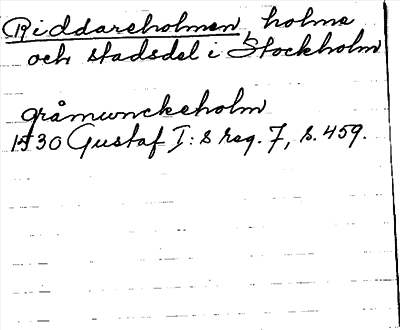 Riddareholmen, holme
och stadsdel i Stockholm
gråmunckeholm
1530 Gustaf I:s reg. 7, s. 459.